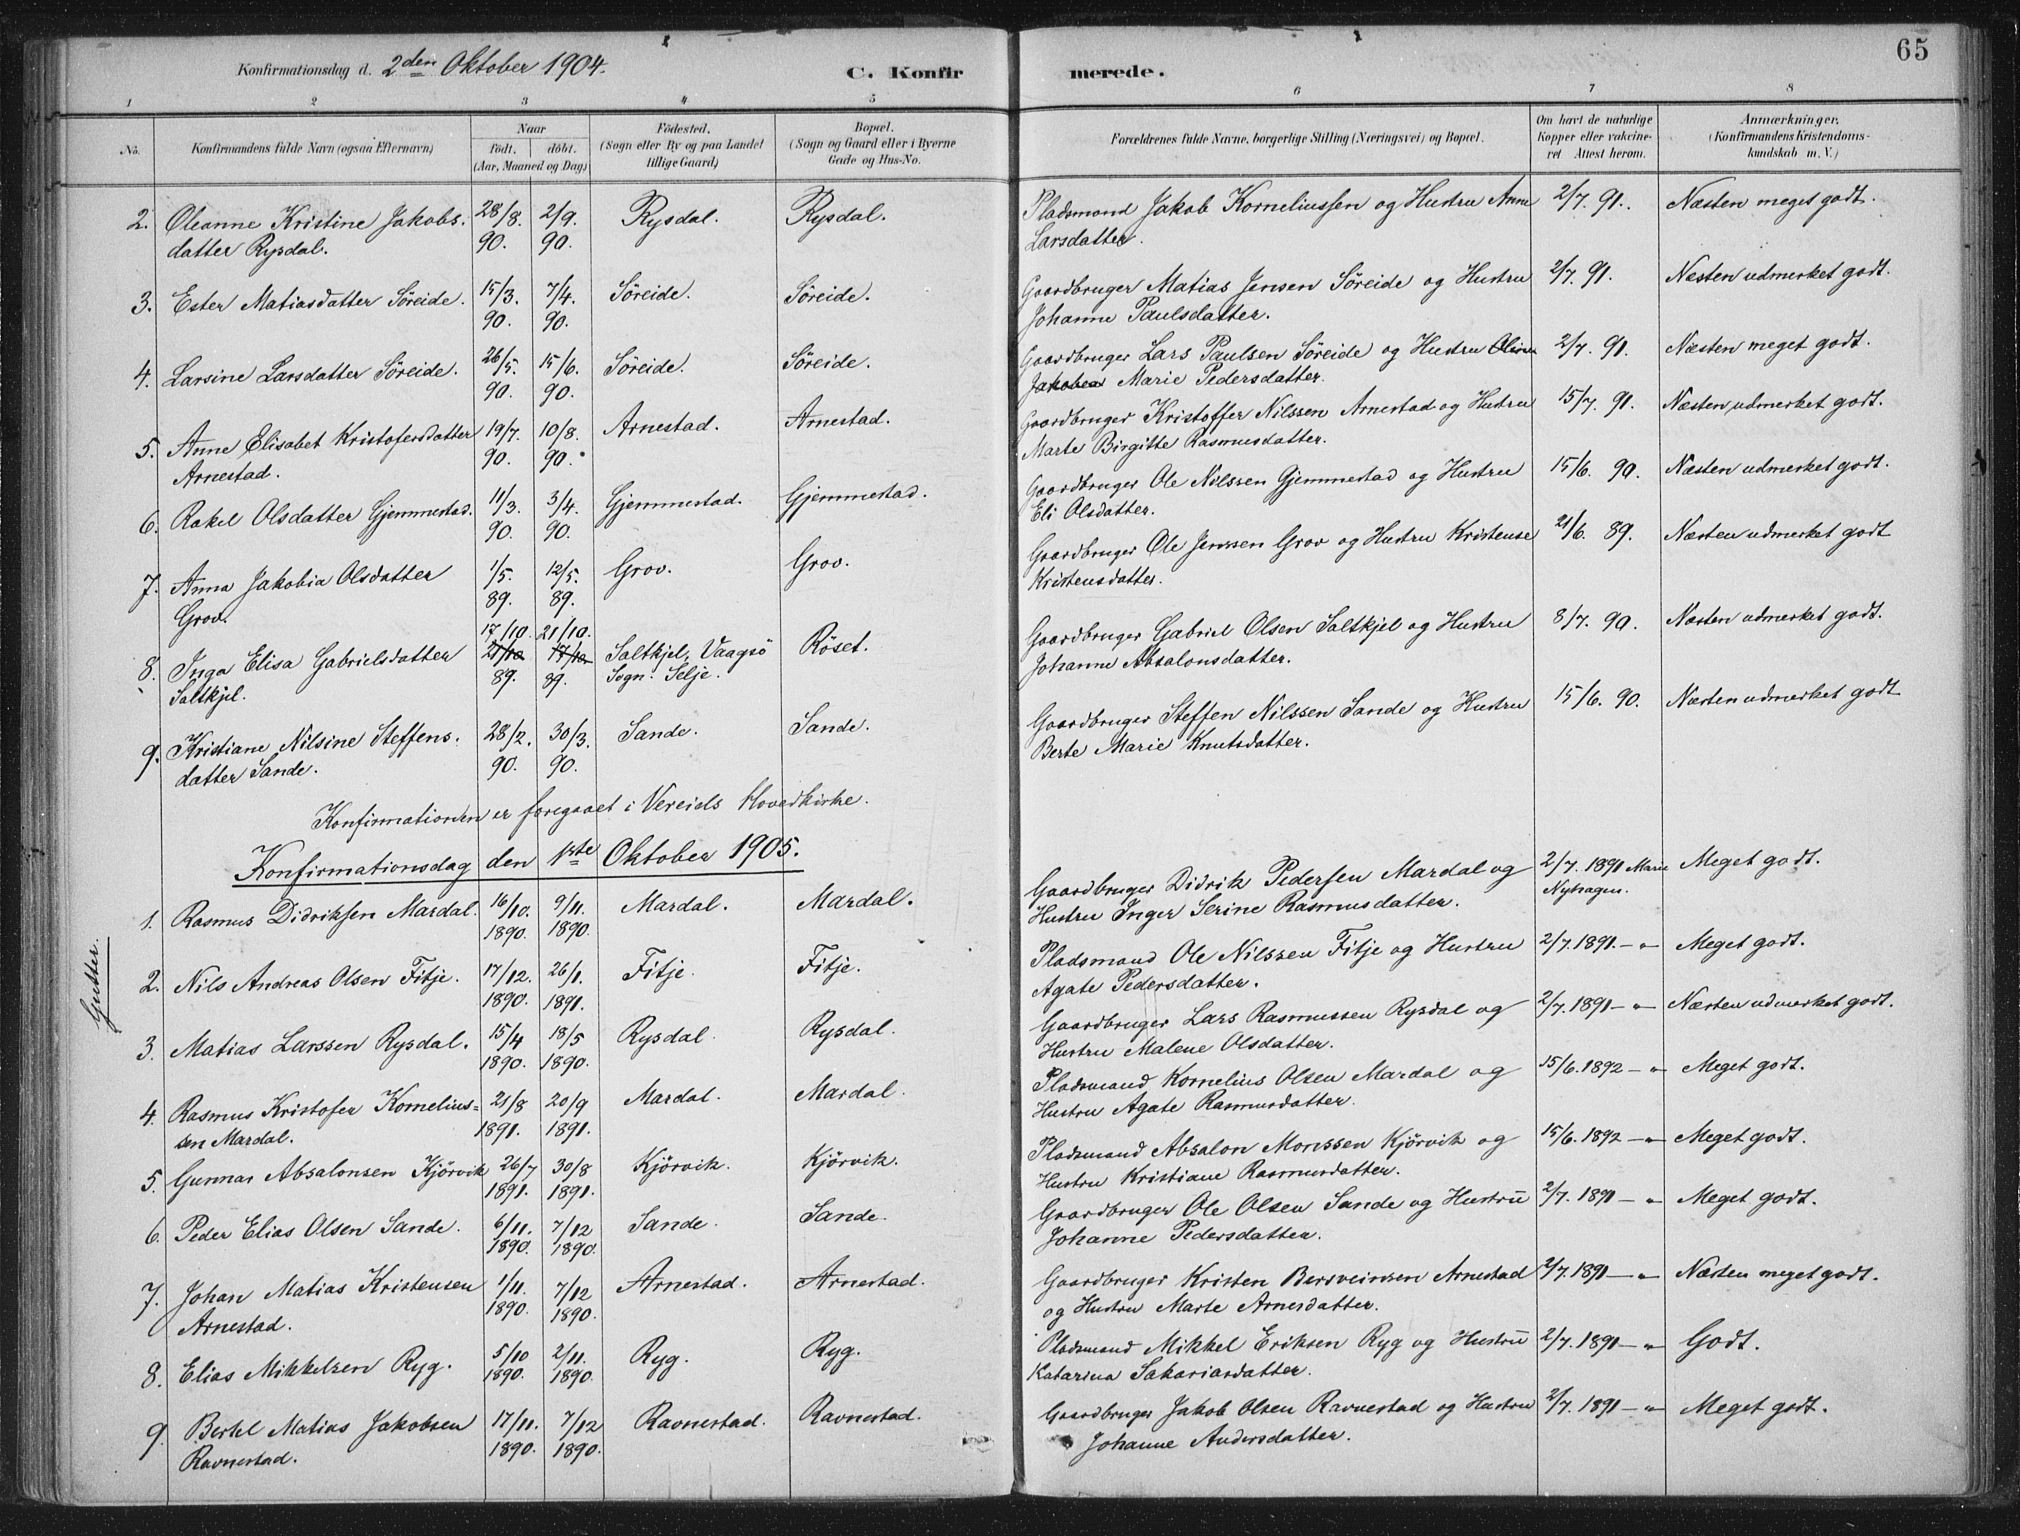 65
Konfirmationsdag d. 2den Oktober 1904. C. Konfirmerede.
1 2 3 4 5 6 7 8
No. Konfirmandens fulde Navn (ogsaa Efternavn) Naar födt. döbt. (Aar, Maaned og Dag) Födested. (Sogn eller By og paa Landet tillige Gaard) Bopæl. (Sogn og Gaard eller i Byerne Gade og Hus-No. Forældrenes fulde Navne, borgerlige Stilling (Næringsvei) og Bopæl. Om havt de naturlige Kopper eller vakcineret Attest herom. Anmærkninger, (Konfirmandens Kristendomskundskab m. V.)
2. Oleanne Kristine Jakobs. 28/8. 2/9. Rysdal. Rysdal. Pladsmand Jakob Korneliussen og Hustru Anne 2/7. 91. Næsten meget godt.
datter Rysdal. 90. 90. Larsdatter.
3. Ester Matiasdatter Söreide. 15/3. 7/4. Söreide. Söreide. Gaardbruger Matias Jensen Söreide og Hustru 2/7. 91. Næsten udmerket godt.
90. 90. Johanne Paulsdatter.
4. Larsine Larsdatter Söreide. 26/5. 15/6. Söreide. Söreide. Gaardbruger Lars Paulsen Söreide og Hustru Oline 2/7. 91. Næsten meget godt.
90. 90. Jakobea Marie Pedersdatter.
5. Anne Elisabet Kristofersdatter 19/7. 10/8. Arnestad. Arnestad. Gaardbruger Kristoffer Nilssen Arnestad og Hustru 15/7. 91. Næsten udmerket godt.
Arnestad. 90. 90. Marte Birgitte Rasmusdatter.
6. Rakel Olsdatter Gjemmestad. 11/3. 3/4. Gjemmestad. Gjemmestad. Gaardbruger Ole Nilssen Gjemmestad og Hustru 15/6. 90. Næsten udmerket godt.
90. 90. Eli Olsdatter.
7. Anna Jakobia Olsdatter 1/5. 12/5. Grov. Grov. Gaardbruger Ole Jenssen Grov og Hustru Kristense 21/6. 89. Næsten udmerket godt
Grov. 89. 89. Kristensdatter.
17/10. 21/10.
8. Inga Elisa Gabrielsdatter 21/10 17/10 Saltkjel, Vaagsö Röset. Gaardbruger Gabriel Olsen Saltkjel og Hustru 8/7. 90. Næsten udmerket godt.
Saltkjel. 89. 89. Sogn. Selje. Johanne Absalonsdatter.
9. Kristiane Nilsine Steffens. 28/2. 30/3. Sande. Sande. Gaardbruger Steffen Nilssen Sande og Hustru 15/6. 90. Næsten udmerket godt
datter Sande. 90. 90. Berte Marie Knutsdatter.
Konfirmationen er foregaaet i Vereids Hovedkirke.
Konfirmationsdag den 1ste Oktober 1905.
Gutter.
1. Rasmus Didriksen Mardal. 16/10. 9/11. Mardal. Mardal. Gaardbruger Didrik Pedersen Mardal og 2/7. 1891 Marie Meget godt.
1890. 1890. Hustru Inger Serine Rasmusdatter. Nyhagen.
2. Nils Andreas Olsen Fitje. 17/12. 26/1. Fitje. Fitje. Pladsmand Ole Nilssen Fitje og Hustru 2/7. 1891. — " Meget godt.
1890. 1891. Agate Pedersdatter.
3. Matias Larssen Rysdal. 15/4 18/5 Rysdal. Rysdal. Gaardbruger Lars Rasmussen Rysdal og 2/7. 1891 — " Næsten udmerket godt.
1890. 1890. Hustru Malene Olsdatter.
4. Rasmus Kristofer Kornelius= 21/8 20/9 Mardal. Mardal. Pladsmand Kornelius Olsen Mardal og 15/6. 1892 — " Meget godt.
sen Mardal. 1891. 1891. Hustru Agate Rasmusdatter.
5. Gunnar Absalonsen Kjörvik 26/7 30/8 Kjörvik. Kjörvik. Pladsmand Absalon Monssen Kjörvik og 15/6. 1892 — " Meget godt.
1891. 1891. Hustru Kristiane Rasmusdatter.
6. Peder Elias Olsen Sande. 6/11. 7/12 Sande. Sande. Gaardbruger Ole Olsen Sande og Hustru 2/7. 1891 — " Meget godt.
1890. 1890. Johanne Pedersdatter.
7. Johan Matias Kristensen 1/11. 7/12 Arnestad. Arnestad. Gaardbruger Kristen Bersveinsen Arnestad 2/7. 1891 — " Næsten meget godt.
Arnestad. 1890. 1890. og Hustru Marte Arnesdatter.
8. Elias Mikkelsen Ryg. 5/10 2/11. Ryg. Ryg. Pladsmand Mikkel Eriksen Ryg og Hustru 2/7. 1891 — " Godt.
1890. 1890. Katarina Sakariasdatter.
9. Bertel Matias Jakobsen 17/11. 7/12 Ravnestad. Ravnestad. Gaardbruger Jakob Olsen Ravnestad og Hustru 2/7. 1891 — " Meget godt.
Ravnestad. 1890. 1890. Johanne Andersdatter.